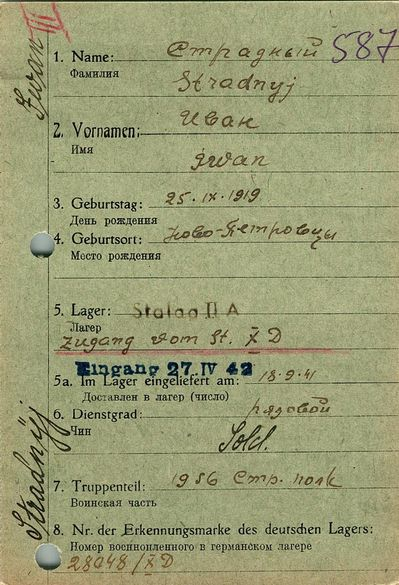 III
587
Iwan
1. Name: Страдный
Фамилия
Stradnyj
2. Vornamen: Иван
Имя
Iwan
3. Geburtstag: 25·IX·1919
День рождения
4. Geburtsort: Ново-Петровцы
Место рождения
5. Lager: Stalag II A
Лагер
Zugang vom St. X D
Eingang 27. IV 42
5a. Im Lager eingeliefert am: 18·9·41
Доставлен в лагер (число)
6. Dienstgrad: рядовой
Чин
Sold.
7. Truppenteil: 1956 Стр. полк
Воинская часть
8. Nr. der Erkennungsmarke des deutschen Lagers:
Номер военнопленного в германском лагере
28048/XD
Stradnyj